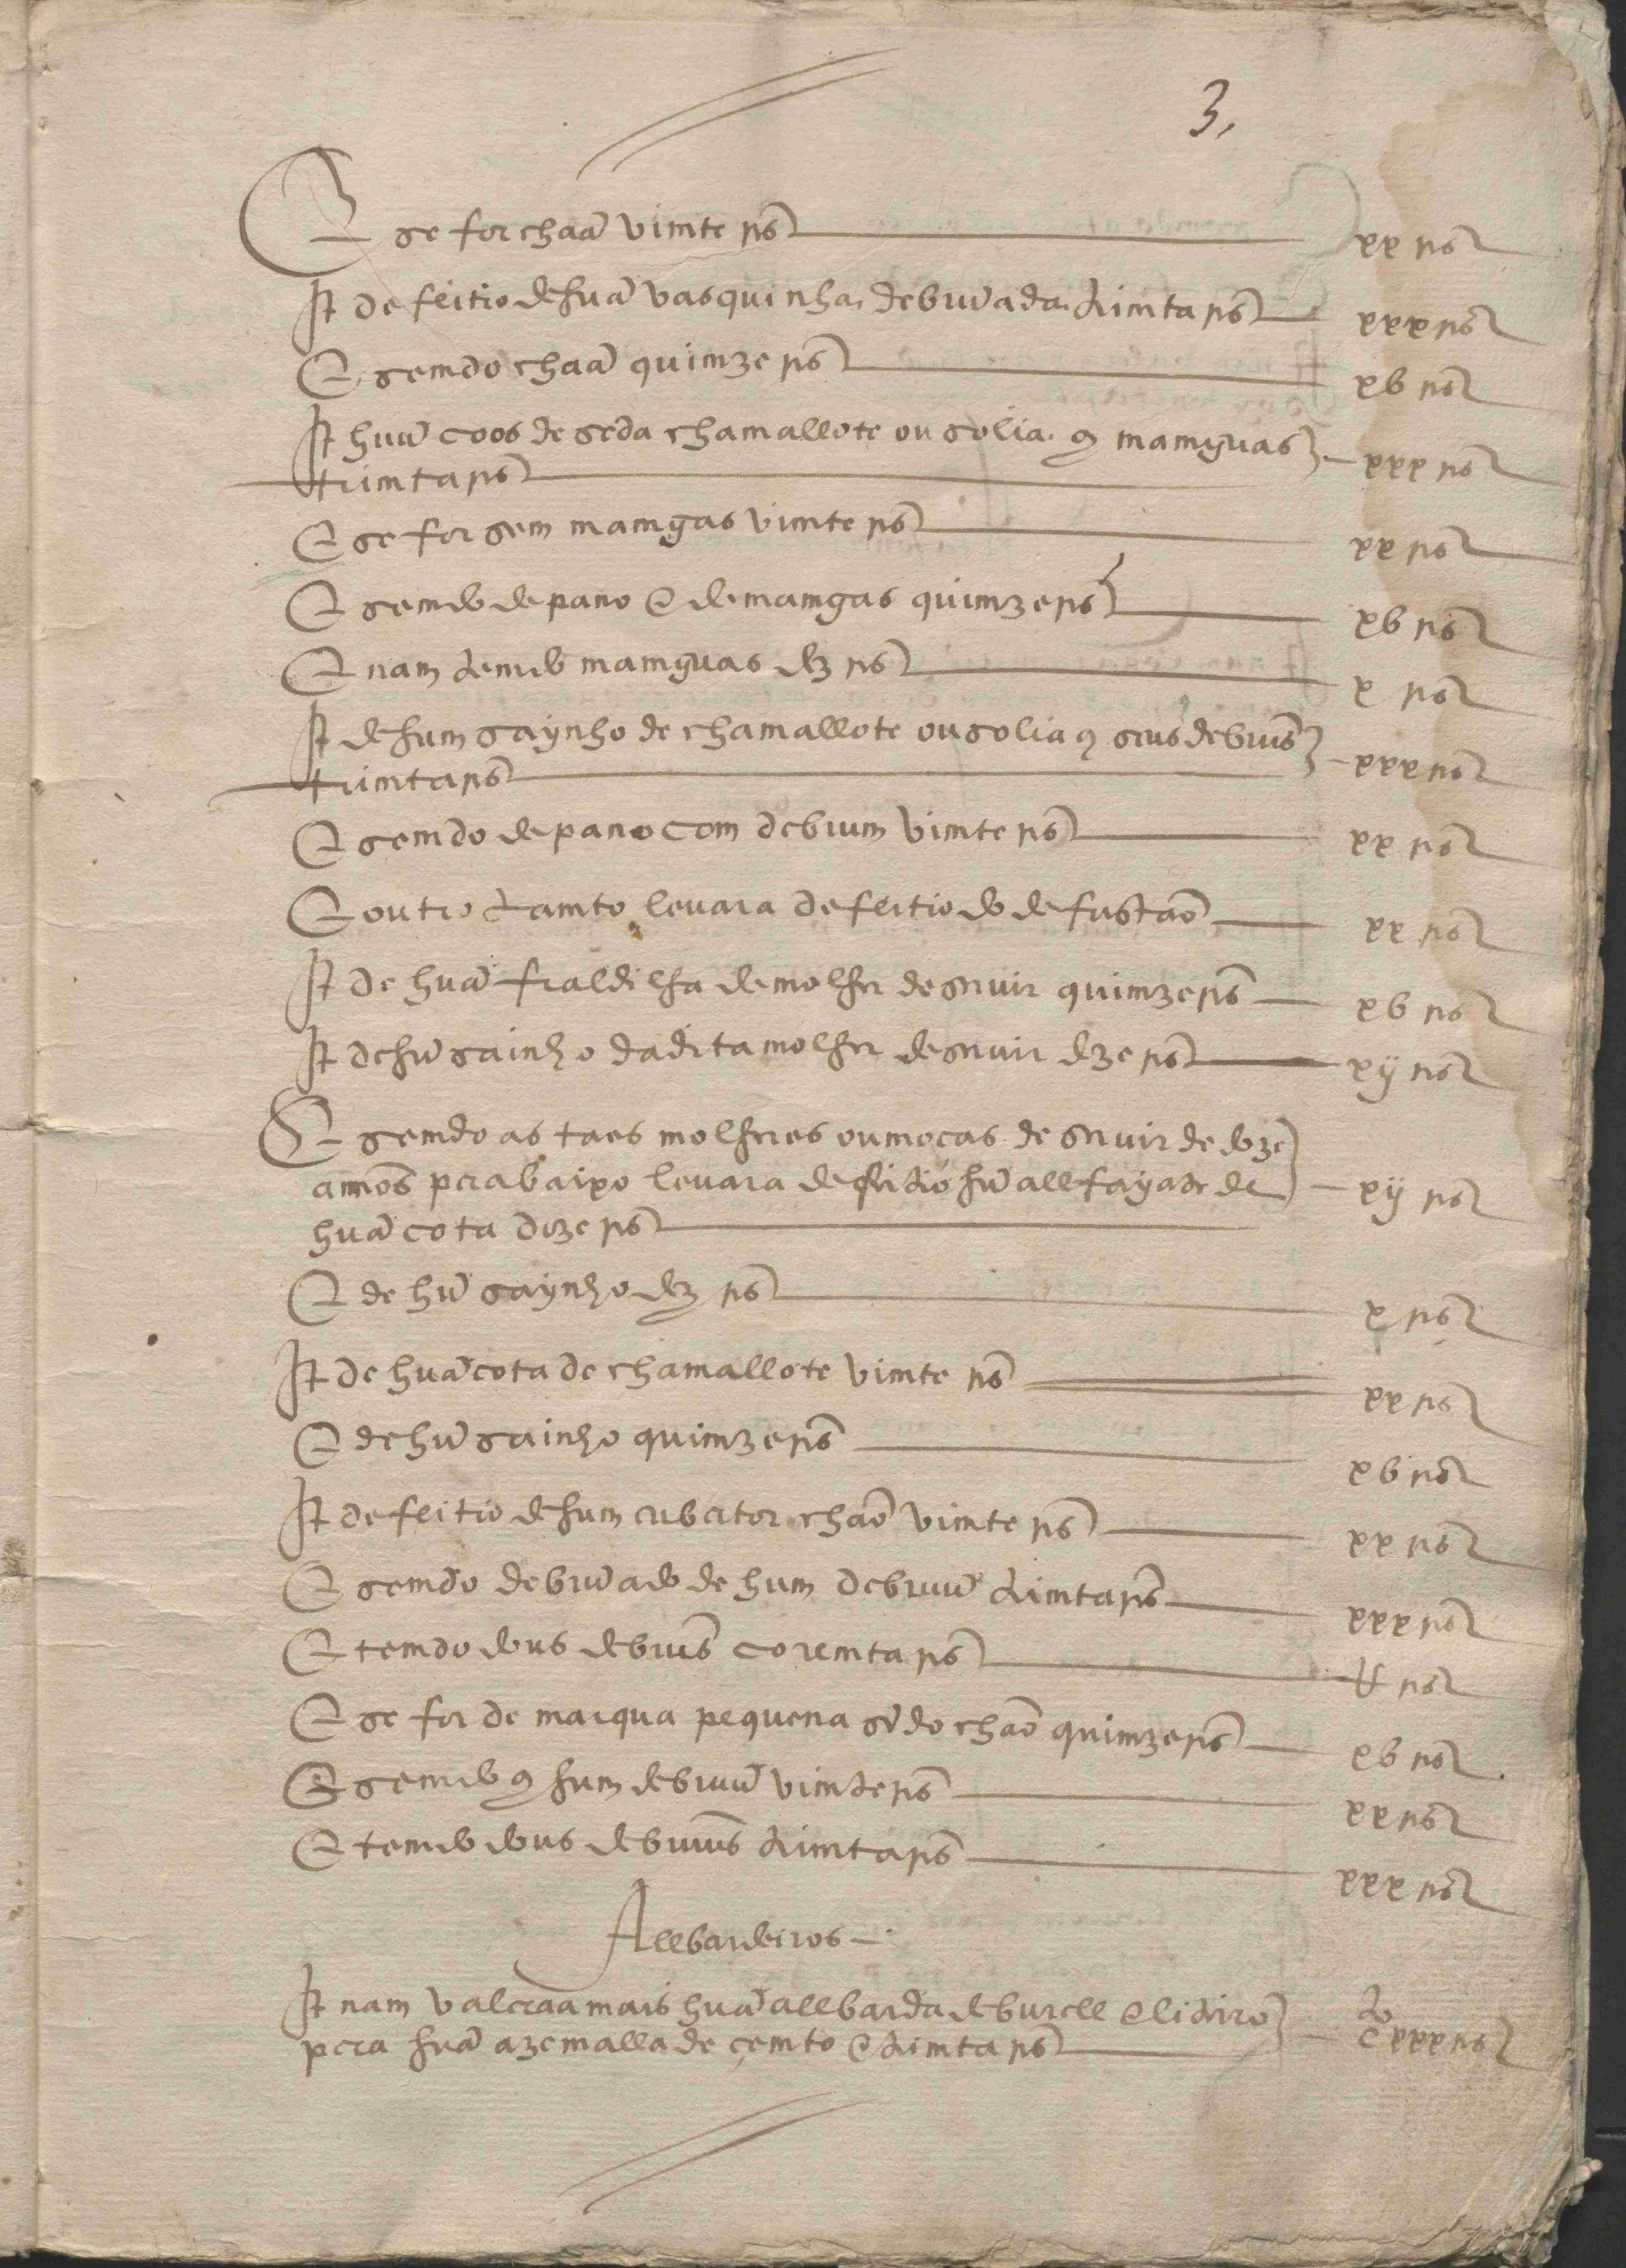 3,
E se for chaã vimte rs̃ xx rs̃
It de feitio de huã vasquinha debruada trimta rs̃ xxx rs̃
E semdo chaã quimze rs̃ xb rs̃
It huũ coos de seda chamallote ou solia cõ mamguas
trimta rs̃ xxx rs̃
E se for sem mamgas vimte rs̃ xx rs̃
E semdo de pano e de mamgas quimze rs̃ xb rs̃
E nam temdo mamguas dez rs̃ x rs̃
It de hum saynho de chamallote ou solia cõ seus debrũs
trimta rs̃ xxx rs̃
E semdo de pano com debrum vimte rs̃ xx rs̃
E outro tamto levara de feitio do de fustaõ xx rs̃
It de huã fraldilha de molher de servir quimze rs̃ xb rs̃
It de hũ sainho da dita molher de servir doze rs̃ xij rs̃
E semdo as taes molheres ou moças de servir de doze
annos pera baixo levara de feitio hũ allfayate de
huã cota doze rs̃ xij rs̃
E de hũ saynho dez rs̃ x rs̃
It de huã cota de chamallote vimte rs̃ xx rs̃
E de hũ sainho quimze rs̃ xb rs̃
It de feitio de hum cubertor chaõ vimte rs̃ xx rs̃
E semdo debruado de hum debruũ trimta rs̃ xxx rs̃
E temdo dous debrũs coremta rs̃ R rs̃
E se for de marqua pequena sẽdo chaõ quimze rs̃ xb rs̃
E semdo cõ hum debruũ vimte rs̃ xx rs̃
E temdo dous debruũs trimta rs̃ xxx rs̃
Allbardeiros
It nam valeraa mais huã allbarda de burell e liteiro
pera huã azemalla de çemto e trimta rs̃ cto xxx rs̃